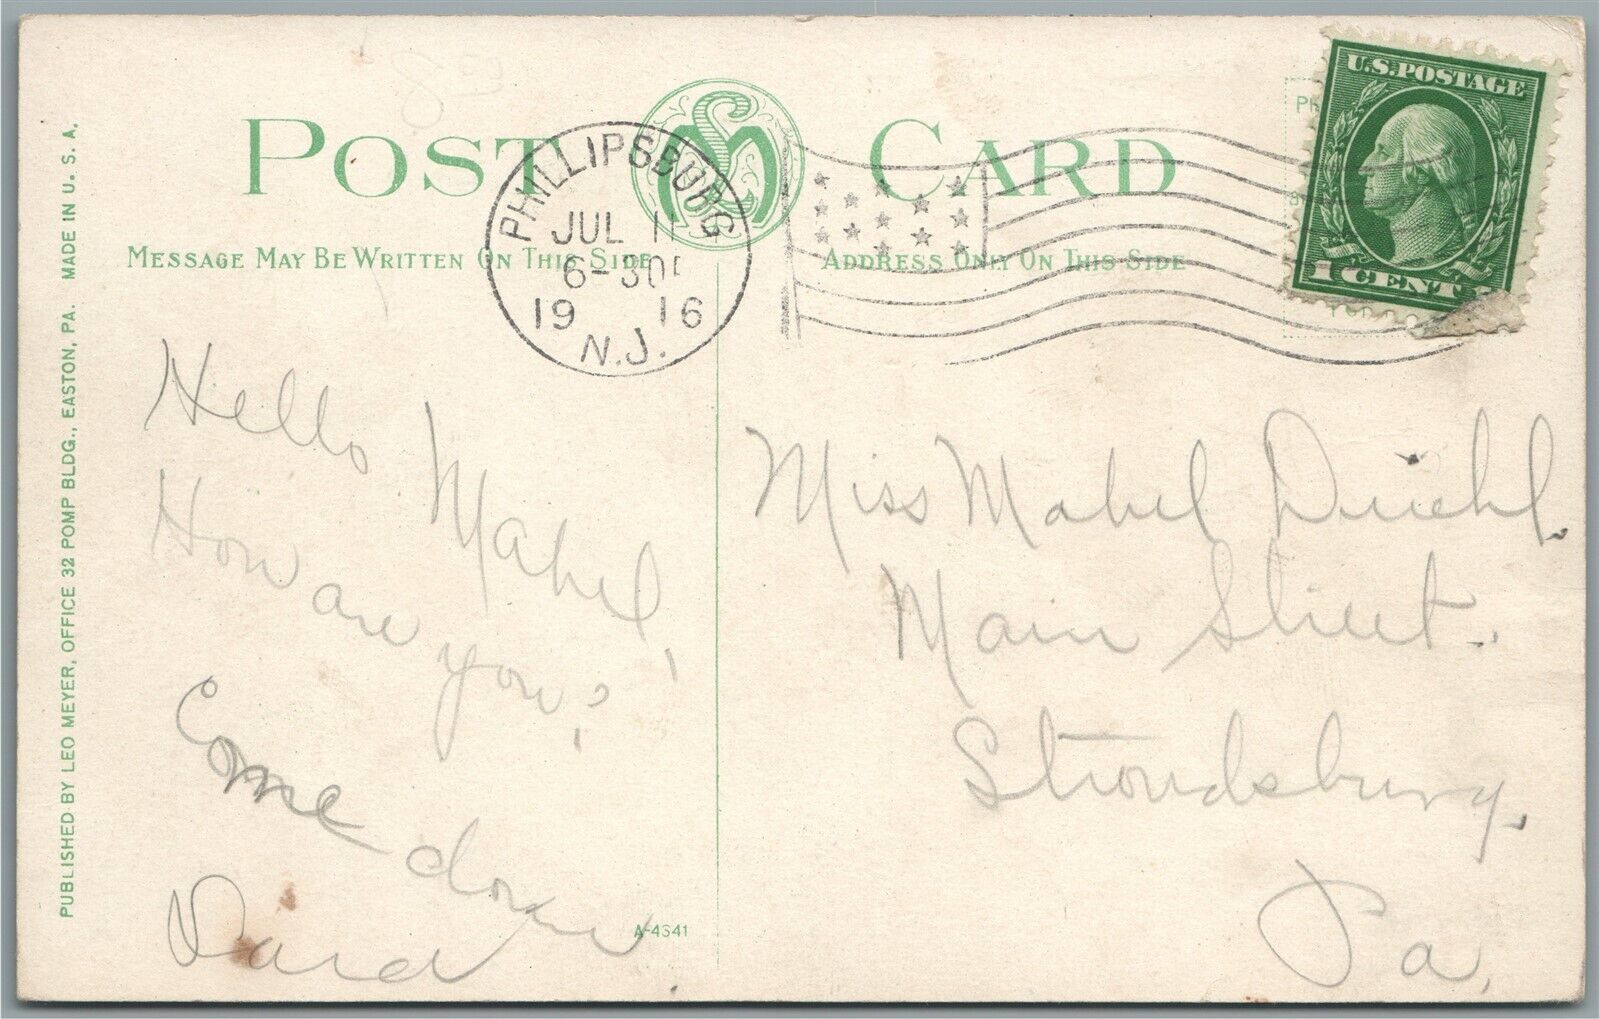 POST CARD
MESSAGE MAY BE WRITTEN ON THIS SIDE
ADDRESS ONLY ON THIS SIDE
PHILLIPSBURG
JUL 11
6-30P
1916
N.J.
U.S. POSTAGE
1 CENT 1
PUBLISHED BY LEO MEYER, OFFICE 32 POMP BLDG., EASTON, PA. MADE IN U.S.A.
Hello Mabel
How are you?
Come down
A-4341
Miss Mabel Diehl.
Main Street.
Stroudsburg,
Pa.